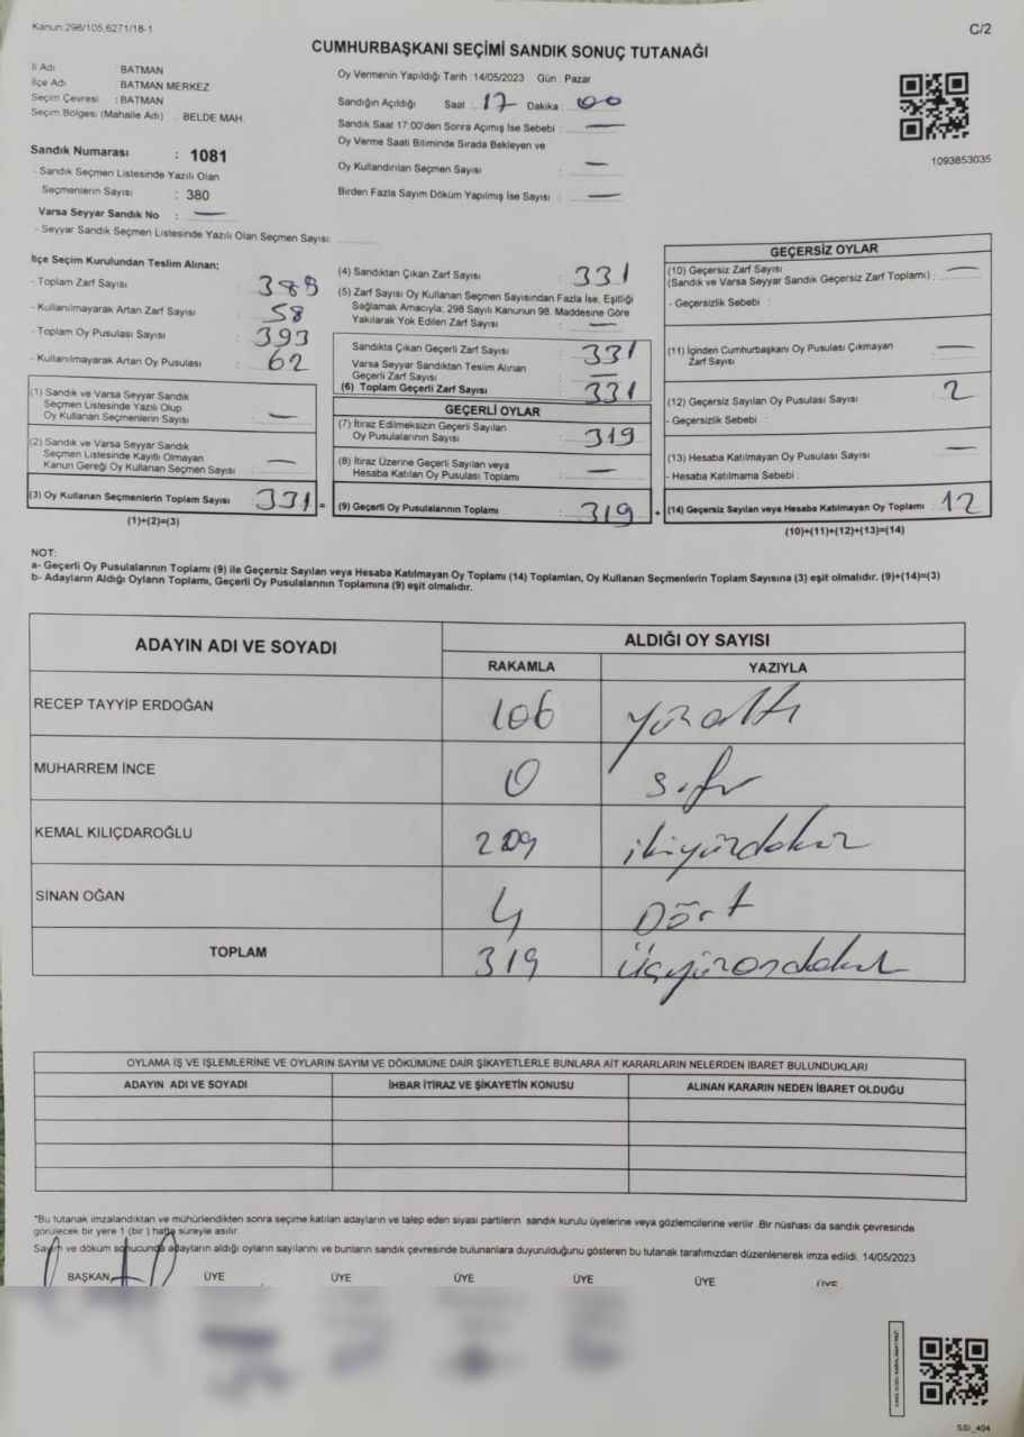 Kanun:298/105,6271/18-1
C/2
CUMHURBAŞKANI SEÇİMİ SANDIK SONUÇ TUTANAĞI
İl Adı : BATMAN
İlçe Adı : BATMAN MERKEZ
Seçim Çevresi : BATMAN
Seçim Bölgesi (Mahalle Adı) BELDE MAH.
Oy Vermenin Yapıldığı Tarih :14/05/2023 Gün : Pazar
Sandığın Açıldığı Saat : 17 Dakika : 00
Sandık Saat 17:00'den Sonra Açımış İse Sebebi : —
Oy Verme Saati Bitiminde Sırada Bekleyen ve
Oy Kullandırılan Seçmen Sayısı : —
Birden Fazla Sayım Döküm Yapılmış İse Sayısı : —
1093853035
Sandık Numarası : 1081
- Sandık Seçmen Listesinde Yazılı Olan
Seçmenlerin Sayısı : 380
Varsa Seyyar Sandık No : —
- Seyyar Sandık Seçmen Listesinde Yazılı Olan Seçmen Sayısı:
İlçe Seçim Kurulundan Teslim Alınan;
- Toplam Zarf Sayısı : 389
- Kullanılmayarak Artan Zarf Sayısı : 58
- Toplam Oy Pusulası Sayısı : 393
- Kullanılmayarak Artan Oy Pusulası : 62
(1) Sandık ve Varsa Seyyar Sandık
Seçmen Listesinde Yazılı Olup
Oy Kullanan Seçmenlerin Sayısı : —
(2) Sandık ve Varsa Seyyar Sandık
Seçmen Listesinde Kayıtlı Olmayan
Kanun Gereği Oy Kullanan Seçmen Sayısı : —
(3) Oy Kullanan Seçmenlerin Toplam Sayısı : 331 =
(1)+(2)=(3)
(4) Sandıktan Çıkan Zarf Sayısı : 331
(5) Zarf Sayısı Oy Kullanan Seçmen Sayısından Fazla İse, Eşitliği
Sağlamak Amacıyla; 298 Sayılı Kanunun 98. Maddesine Göre
Yakılarak Yok Edilen Zarf Sayısı : —
Sandıkta Çıkan Geçerli Zarf Sayısı : 331
Varsa Seyyar Sandıktan Teslim Alınan
Geçerli Zarf Sayısı : —
(6) Toplam Geçerli Zarf Sayısı : 331
GEÇERLİ OYLAR
(7) İtiraz Edilmeksizin Geçerli Sayılan
Oy Pusulalarının Sayısı : 319
(8) İtiraz Üzerine Geçerli Sayılan veya
Hesaba Katılan Oy Pusulası Toplamı : —
(9) Geçerli Oy Pusulalarının Toplamı : 319 +
GEÇERSİZ OYLAR
(10) Geçersiz Zarf Sayısı
(Sandık ve Varsa Seyyar Sandık Geçersiz Zarf Toplamı) : —
- Geçersizlik Sebebi :
(11) İçinden Cumhurbaşkanı Oy Pusulası Çıkmayan
Zarf Sayısı : —
(12) Geçersiz Sayılan Oy Pusulası Sayısı : 2
- Geçersizlik Sebebi :
(13) Hesaba Katılmayan Oy Pusulası Sayısı : —
- Hesaba Katılmama Sebebi :
(14) Geçersiz Sayılan veya Hesaba Katılmayan Oy Toplamı : 12
(10)+(11)+(12)+(13)=(14)
NOT:
a- Geçerli Oy Pusulalarının Toplamı (9) ile Geçersiz Sayılan veya Hesaba Katılmayan Oy Toplamı (14) Toplamları, Oy Kullanan Seçmenlerin Toplam Sayısına (3) eşit olmalıdır. (9)+(14)=(3)
b- Adayların Aldığı Oyların Toplamı, Geçerli Oy Pusulalarının Toplamına (9) eşit olmalıdır.
ADAYIN ADI VE SOYADI
ALDIĞI OY SAYISI
RAKAMLA YAZIYLA
RECEP TAYYİP ERDOĞAN 106 yüzaltı
MUHARREM İNCE 0 sıfır
KEMAL KILIÇDAROĞLU 209 ikiyüzdokuz
SİNAN OĞAN 4 Dört
TOPLAM 319 üçyüzondokuz
OYLAMA İŞ VE İŞLEMLERİNE VE OYLARIN SAYIM VE DÖKÜMÜNE DAİR ŞİKAYETLERLE BUNLARA AİT KARARLARIN NELERDEN İBARET BULUNDUKLARI
ADAYIN ADI VE SOYADI İHBAR İTİRAZ VE ŞİKAYETİN KONUSU ALINAN KARARIN NEDEN İBARET OLDUĞU
*Bu tutanak imzalandıktan ve mühürlendikten sonra seçime katılan adayların ve talep eden siyasi partilerin sandık kurulu üyelerine veya gözlemcilerine verilir. Bir nüshası da sandık çevresinde
görülecek bir yere 1 (bir ) hafta süreyle asılır.
Sayım ve döküm sonucunda adayların aldığı oyların sayılarını ve bunların sandık çevresinde bulunanlara duyurulduğunu gösteren bu tutanak tarafımızdan düzenlenerek imza edildi. 14/05/2023
BAŞKAN ÜYE ÜYE ÜYE ÜYE ÜYE ÜYE
SSI_404